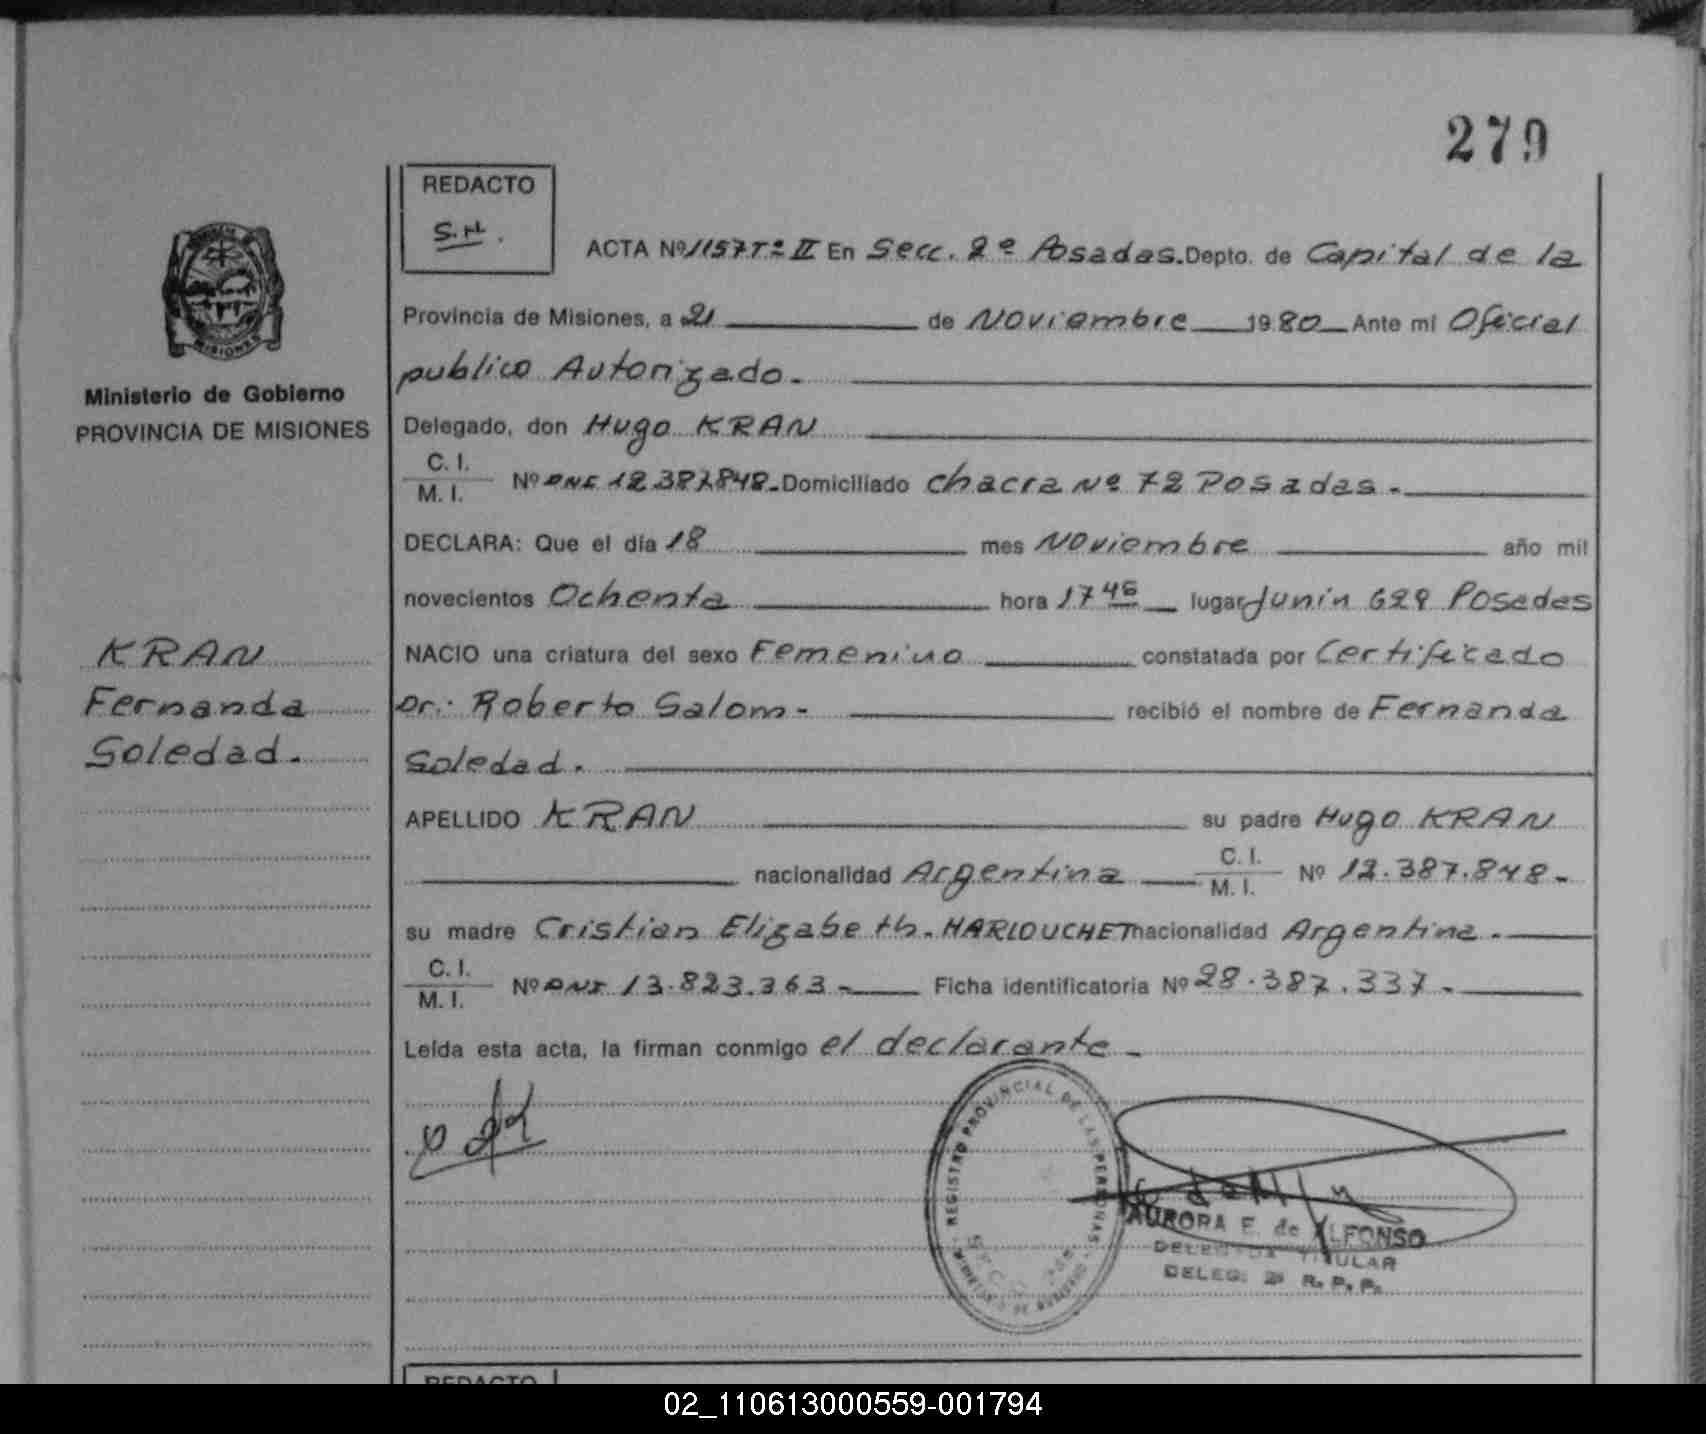 279
REDACTO
S.N.
ACTA Nº 1157 Tº II En Secc. 2º Posadas. Depto. de Capital de la
Provincia de Misiones, a 21 de Noviembre 1980 Ante mi Oficial
publico Autorizado.
Ministerio de Gobierno
PROVINCIA DE MISIONES
Delegado, don Hugo KRAN
C. I.
M. I.
Nº DNI 12.387.848 - Domiciliado chacra Nº 72 Posadas.
DECLARA: Que el día 18 mes Noviembre año mil
novecientos Ochenta hora 17 46 lugar Junín 629 Posadas
KRAN
Fernanda
Soledad.
NACIO una criatura del sexo Femenino constatada por Certificado
Dr.: Roberto Salom- recibió el nombre de Fernanda
Soledad.
APELLIDO KRAN su padre Hugo KRAN
nacionalidad Argentina C. I. M. I. Nº 12.387.848-
su madre Cristian Elizabeth. HARLOUCHET nacionalidad Argentina.
C. I.
M. I.
Nº DNI 13.823.363- Ficha identificatoria Nº 28.387.337-
Leída esta acta, la firman conmigo el declarante-
REGISTRO PROVINCIAL DE LAS PERSONAS
AURORA E. de ALFONSO
DELEGADA TITULAR
DELEG. 2ª R. P. P.
REDACTO
02_110613000559-001794